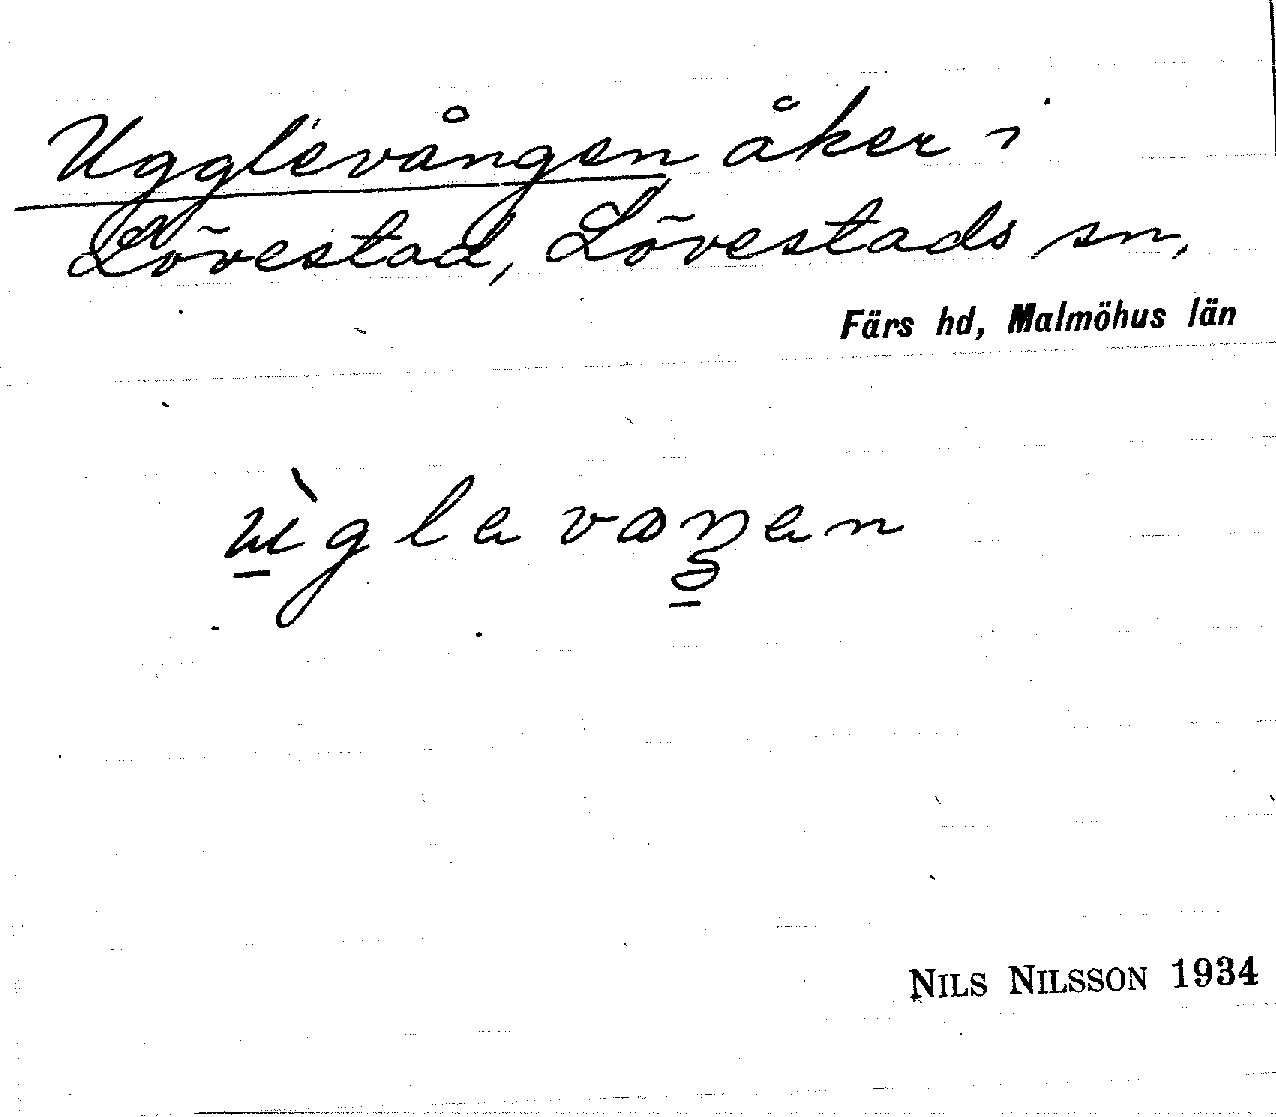 Ugglevången åker i
Lövestad, Lövestads sn,
Färs hd, Malmöhus län
NILS NILSSON 1934